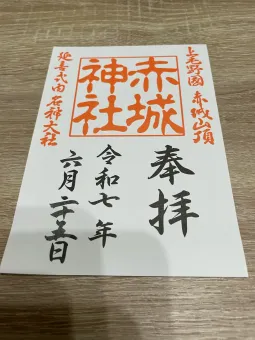 上毛野國 赤城山頂
奉拝
赤城
神社
令和七年
六月二十五日
延喜式内名神大社